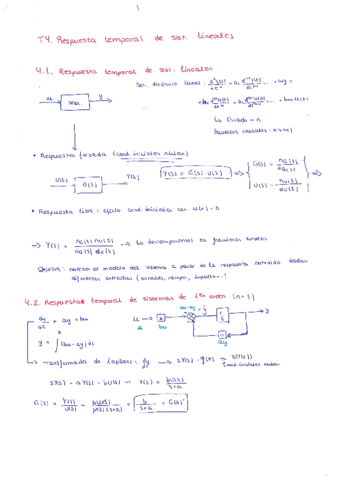 T4. Respuesta temporal de sist. lineales
4.1. Respuesta temporal de sist. lineales
u → sist. → y
Sist. dinámico lineal:
↳ Grado = n
• Respuesta forzada (cond. iniciales nulas)
U(s) → G(s) → Y(s)
Y(s) = G(s)·U(s) ⇒ G(s) = nG(s)/dG(s)
U(s) = nu(s)/du(s)
• Respuesta libre: efecto cond. iniciales con u(t) = 0
⇒ Y(s) = nG(s) nu(s) / dG(s) du(s) → Lo descomponemos en fracciones simples
Objetivo: obtener el modelo del sistema a partir de la respuesta obtenida dadas
diferentes entradas (escalón, rampa, impulso...)
4.2. Respuesta temporal de sistemas de 1er orden (n=1)
dy/dt + ay = bu
y = ∫(bu-ay)dt
u → b → y
bu
ay
↳ Transformada de Laplace: dy/dt → sY(s) - y(0) = sY(s)
cond. iniciales nulas
sY(s) + aY(s) = bU(s) → Y(s) = bU(s)/s+a
G(s) = Y(s)/U(s) = bU(s)/U(s)(s+a) = b/s+a = G(s)